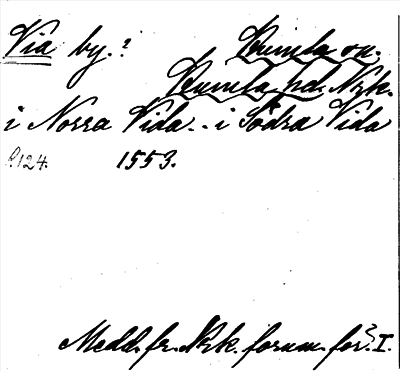 Via by.? Kumla sn.
Kumla hd. Nrk.
i Norra Vida - i Södra Vida
p.124. 1553.
Medd. fr. Nrk. fornm. för. I.